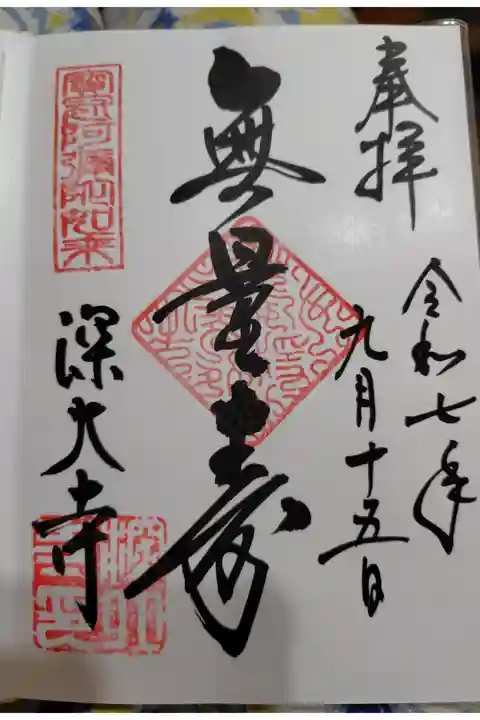 奉拝
令和七年
九月十五日
無量寿
深大寺
阿弥陀如来